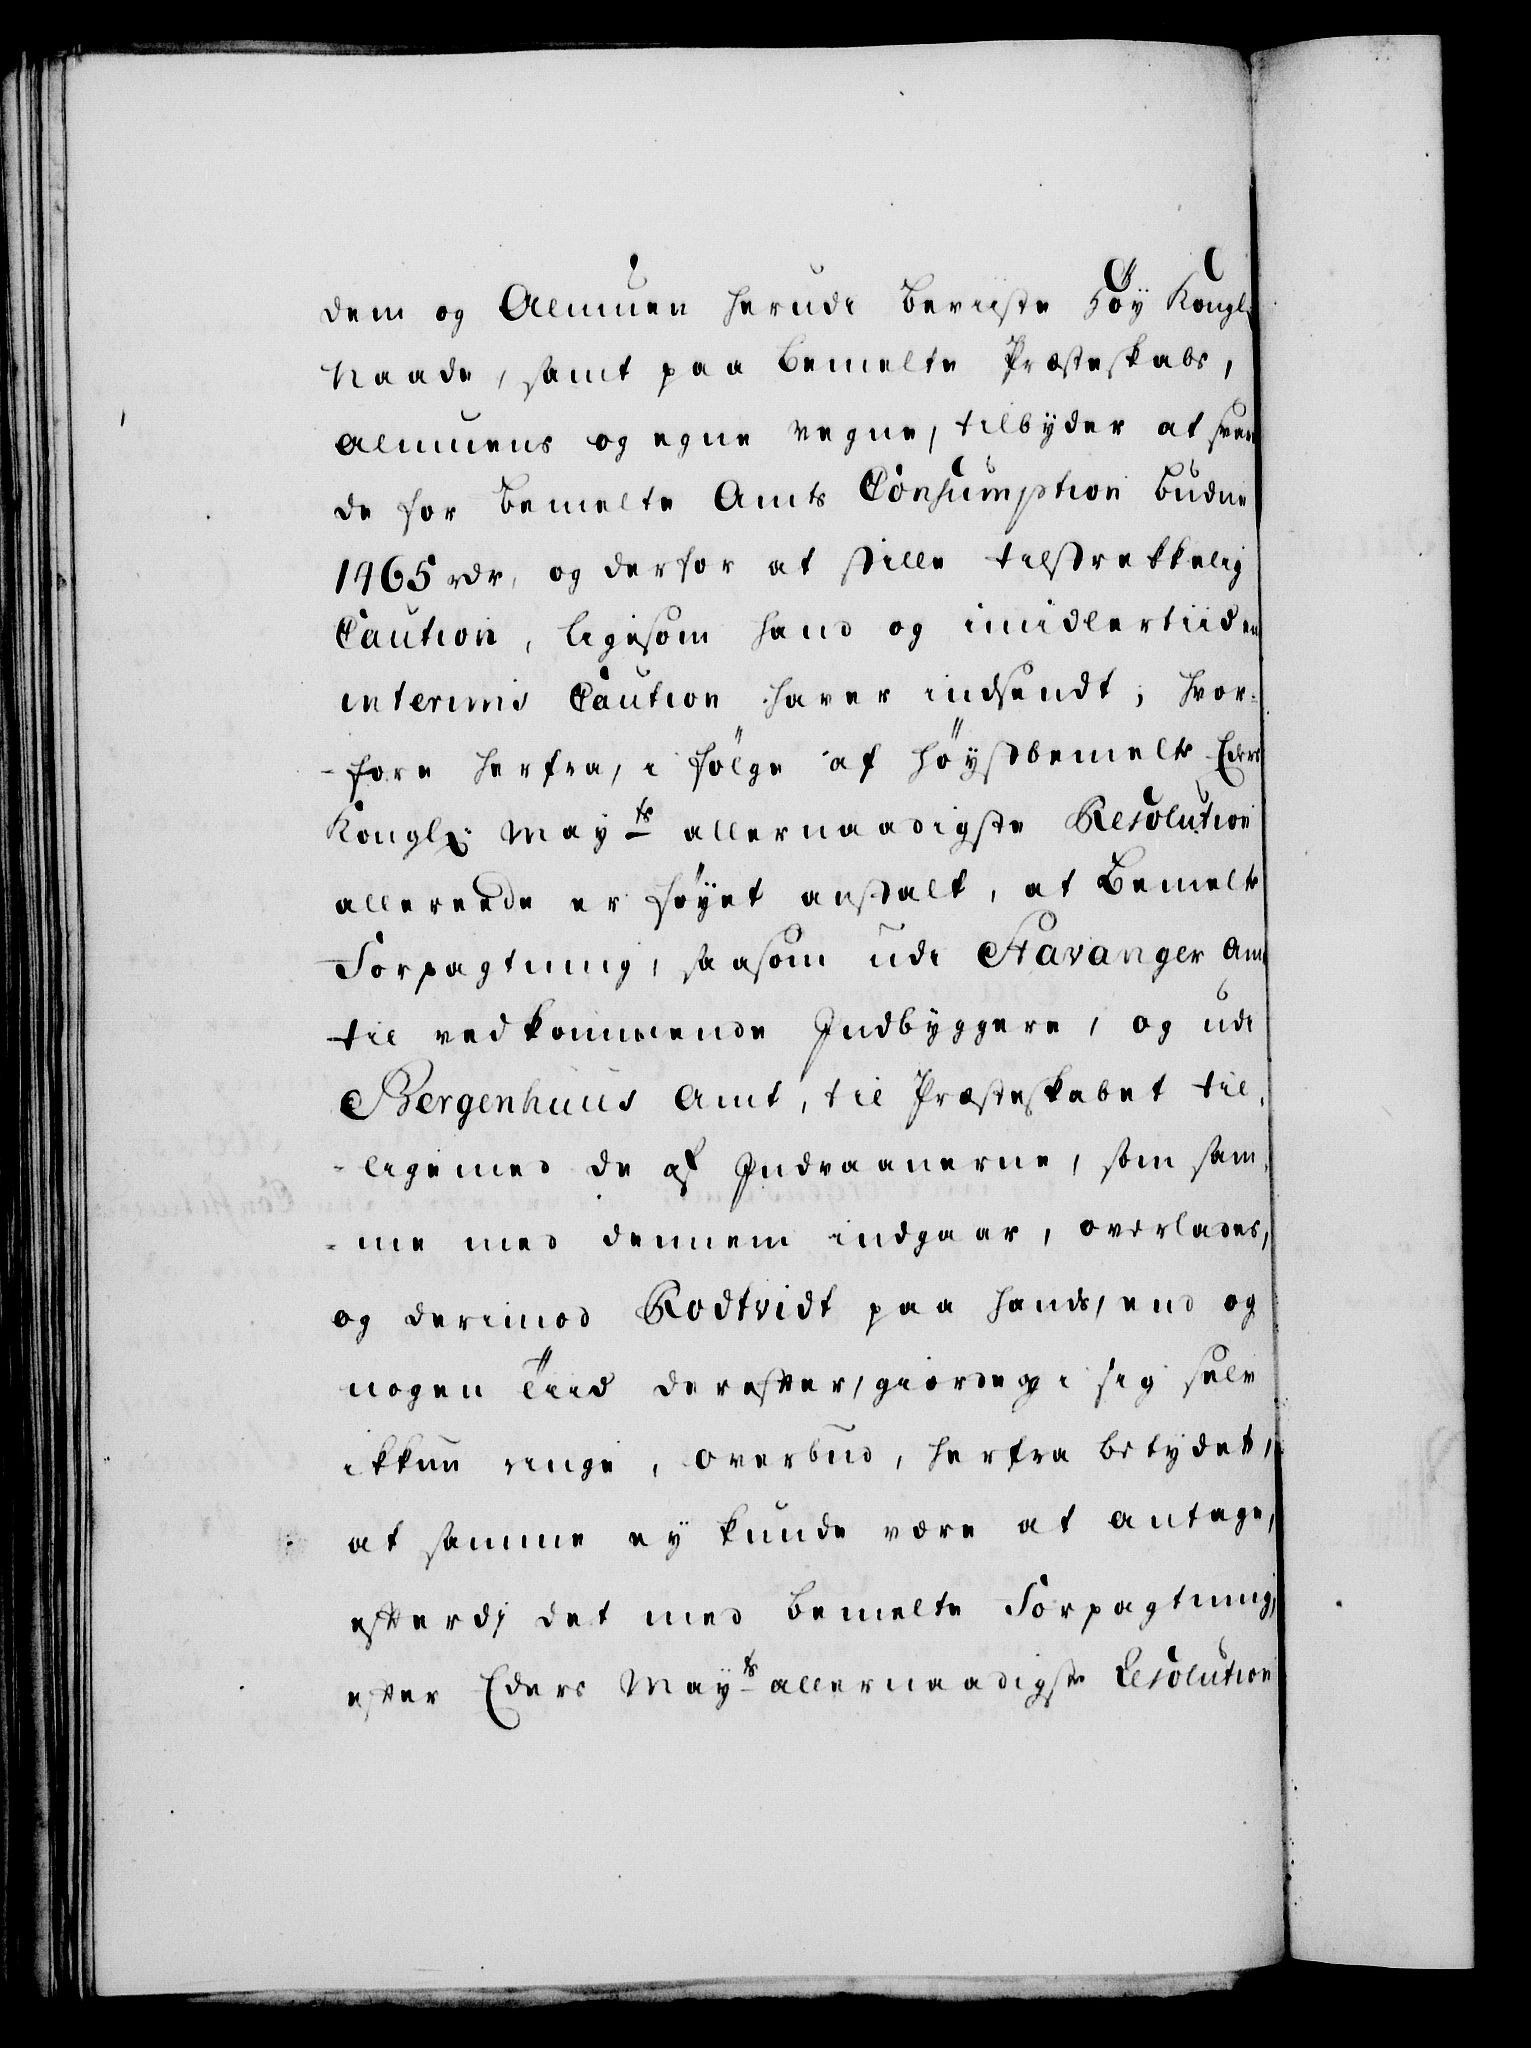 dem og Almuen herudi beviiste Høy Kongl:
Naade, samt paa bemelte Præsteskabs,
Almuens og egne vegne, tilbyder at sva-
de for bemelte Amts Consumption budne
1465 rdr, og derfor at stille tilstrekkelig
Caution, ligesom hand og imidlertiiden
interims Caution haver indsendt; hvor-
-fore herfra, i følge af høystbemelte Eders
Kongl: Mayts allernaadigste Resolution
allereede er føyet anstalt, at bemelte
Forpagtning, saasom udi Stavanger Amt
til vedkommende Indbyggere, og udi
Bergenhuus Amt, til Præsteskabet til-
-ligemed de af Indvaanerne, som sam-
-me med dennem indgaar, overlades,
og derimod Rodtvidt paa hands, end og
nogen Tiid derefter, giorde i sig selv
ikkun ringe, overbud, herfra betydet,
at samme ey kunde være at antage,
efterdj det med bemelte Forpagtning,
efter Eders Mayts allernaadigste Resolution